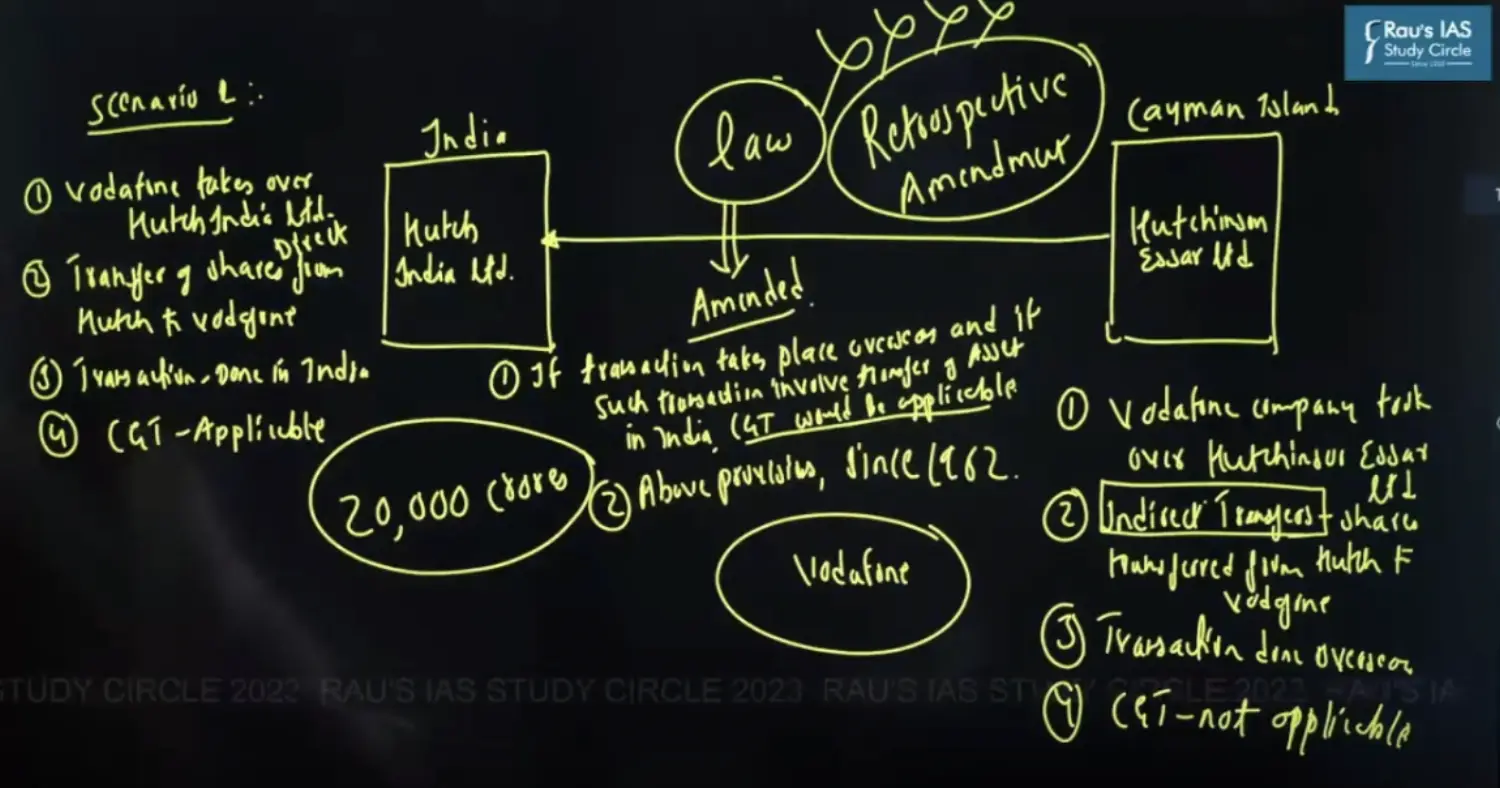 Rau's IAS
Study Circle
Since 1953
Scenario 1 :-
① Vodafone takes over
Hutch India Ltd.
② Transfer of shares Direct from
Hutch to Vodafone
③ Transaction - Done in India
④ CGT - Applicable
India
Hutch
India Ltd.
law
Retrospective
Amendment
Amended.
① If transaction takes place overseas and if
such transaction involve transfer of Asset
in India, CGT would be applicable
② Above provisions, since 1962.
20,000 crores
Vodafone
Cayman Island
Hutchinson
Essar Ltd
① Vodafone company took
over Hutchinson Essar
Ltd
② Indirect Transfers - share
transferred from Hutch to
Vodafone
③ Transaction done overseas
④ CGT - not applicable
STUDY CIRCLE 2023 RAU'S IAS STUDY CIRCLE 2023 RAU'S IAS STUDY CIRCLE 2023 RAU'S IA